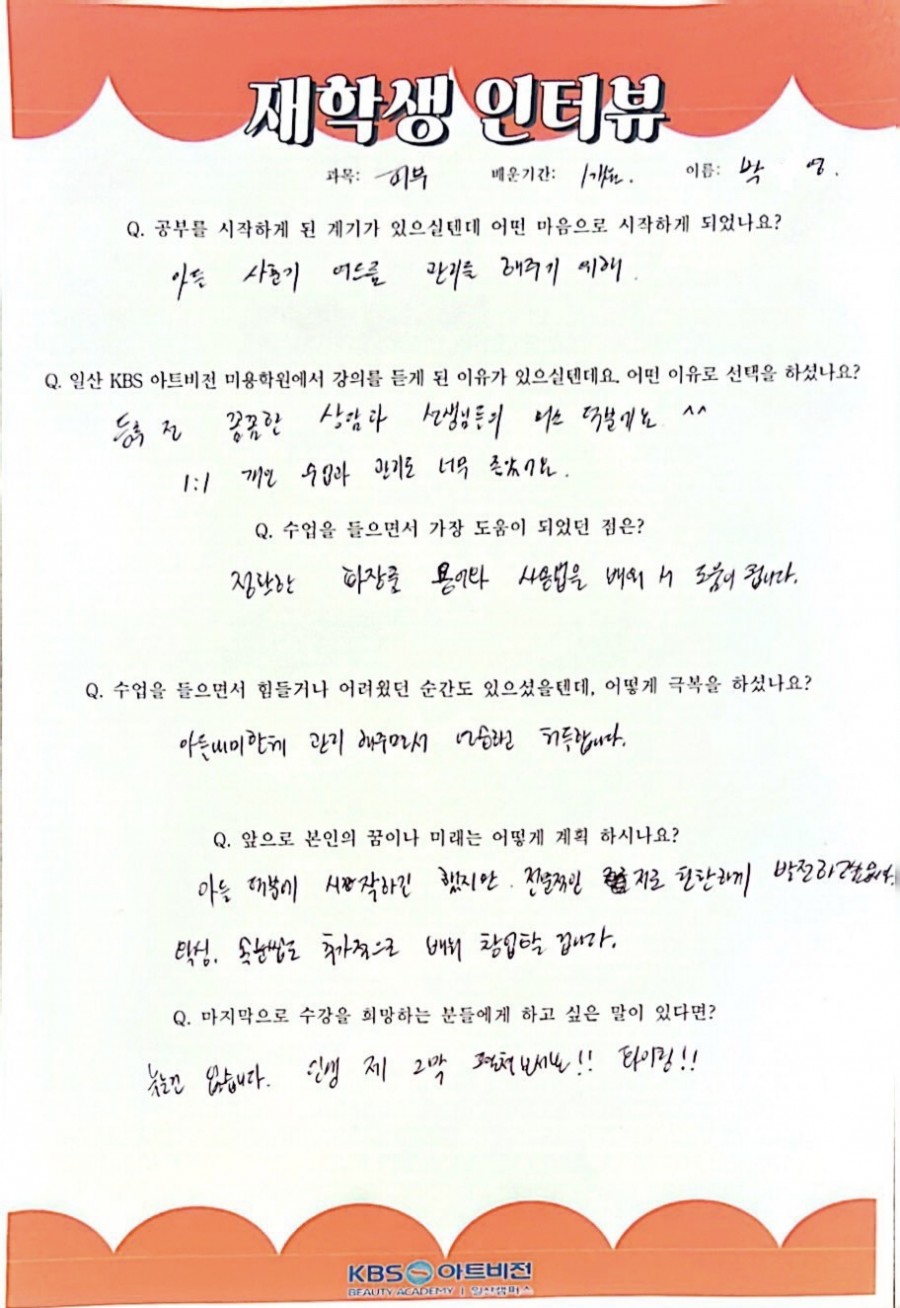 재학생 인터뷰
과목: 피부 배운기간: 1개월. 이름: 박 영.
Q. 공부를 시작하게 된 계기가 있으실텐데 어떤 마음으로 시작하게 되었나요?
아들 사춘기 여드름 관리를 해주기 위해.
Q. 일산 KBS 아트비전 미용학원에서 강의를 듣게 된 이유가 있으실텐데요. 어떤 이유로 선택을 하셨나요?
등록 전 꼼꼼한 상담과 선생님들의 미소 덕분에요 ^^
1:1 개인 수업과 관리도 너무 좋았어요.
Q. 수업을 들으면서 가장 도움이 되었던 점은?
정확한 화장품 용어와 사용법을 배워서 도움이 됩니다.
Q. 수업을 들으면서 힘들거나 어려웠던 순간도 있으셨을텐데, 어떻게 극복을 하셨나요?
아들내미한테 관리 해주면서 연습하면 터득합니다.
Q. 앞으로 본인의 꿈이나 미래는 어떻게 계획 하시나요?
아들 덕분에 시작하긴 했지만. 전문적인 지로 탄탄하게 발전하려합니다.
왁싱, 속눈썹도 추가적으로 배워 창업할 겁니다.
Q. 마지막으로 수강을 희망하는 분들에게 하고 싶은 말이 있다면?
늦는건 없습니다. 인생 제 2막 펼쳐보세요!! 화이팅!!
KBS 아트비전
BEAUTY ACADEMY | 일산캠퍼스